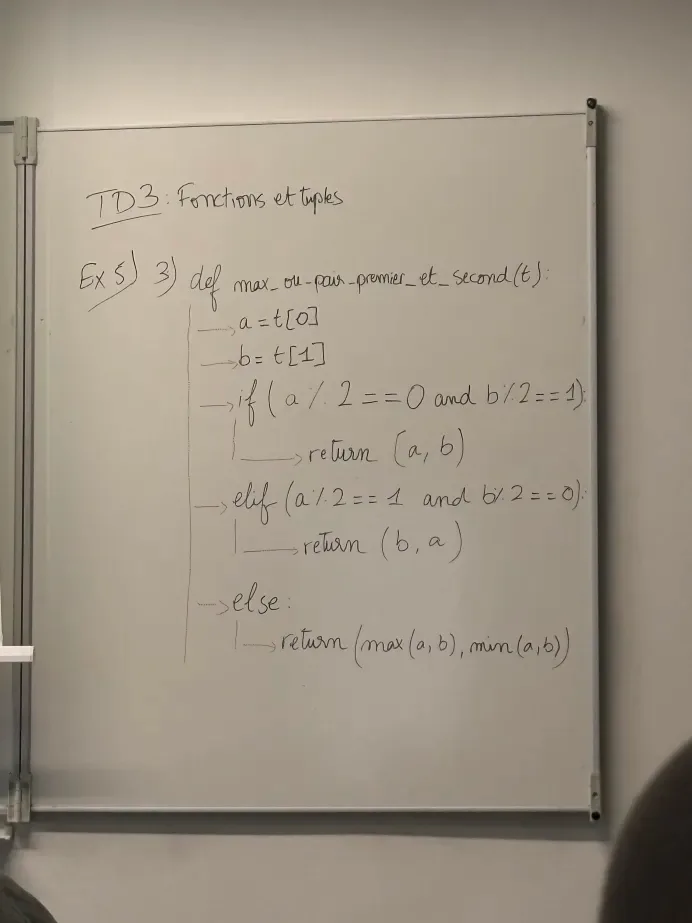 TD3 : Fonctions et tuples
Ex 5) 3) def max_ou_pair_premier_et_second(t):
a = t[0]
b = t[1]
if (a % 2 == 0 and b % 2 == 1):
return (a, b)
elif (a % 2 == 1 and b % 2 == 0):
return (b, a)
else :
return (max(a, b), min(a, b))